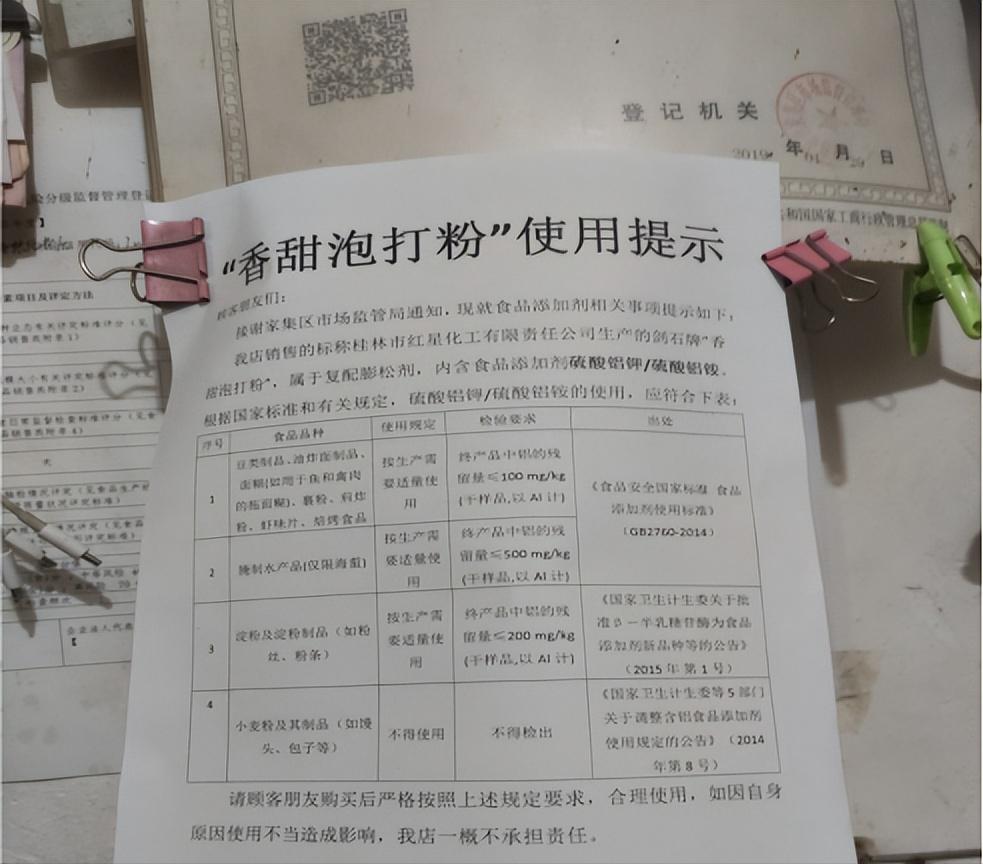 登记机关
2019 年 01 月 29 日
和国国家工商行政管理总局制
分级监督管理登
项目及评定方法
企业法人代表
“香甜泡打粉”使用提示
顾客朋友们：
按谢家集区市场监管局通知，现就食品添加剂相关事项提示如下：
我店销售的标称桂林市红星化工有限责任公司生产的剑石牌“香
甜泡打粉”，属于复配膨松剂，内含食品添加剂硫酸铝钾/硫酸铝铵。
根据国家标准和有关规定，硫酸铝钾/硫酸铝铵的使用，应符合下表：
序号 食品品种 使用规定 检验要求 出处
1
豆类制品、油炸面制品、
面糊(如用于鱼和禽肉
的拖面糊)、裹粉、煎炸
粉、虾味片、焙烤食品
按生产需
要适量使
用
终产品中铝的残
留量≤100 mg/kg
(干样品,以 Al 计)
《食品安全国家标准 食品
添加剂使用标准》
（GB2760-2014）
2
腌制水产品(仅限海蜇)
按生产需
要适量使
用
终产品中铝的残
留量≤500 mg/kg
(干样品,以 Al 计)
3
淀粉及淀粉制品（如粉
丝、粉条）
按生产需
要适量使
用
终产品中铝的残
留量≤200 mg/kg
(干样品,以 Al 计)
《国家卫生计生委关于批
准β－半乳糖苷酶为食品
添加剂新品种等的公告》
（2015 年第 1 号）
4
小麦粉及其制品（如馒
头、包子等）
不得使用
不得检出
《国家卫生计生委等 5 部门
关于调整含铝食品添加剂
使用规定的公告》（2014
年第 8 号）
请顾客朋友购买后严格按照上述规定要求，合理使用，如因自身
原因使用不当造成影响，我店一概不承担责任。